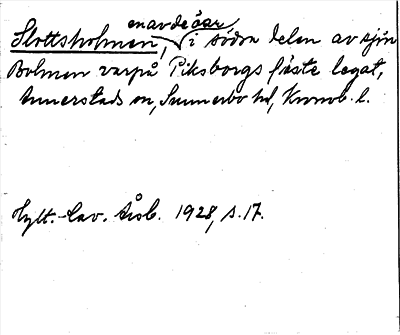 Slottsholmen, en av de öar i södra delen av sjön
Bolmen varpå Piksborgs fäste legat,
Annerstads sn, Sunnerbo hd, Kronob. l.
Hylt.-Cav. Årsb. 1928, s. 17.